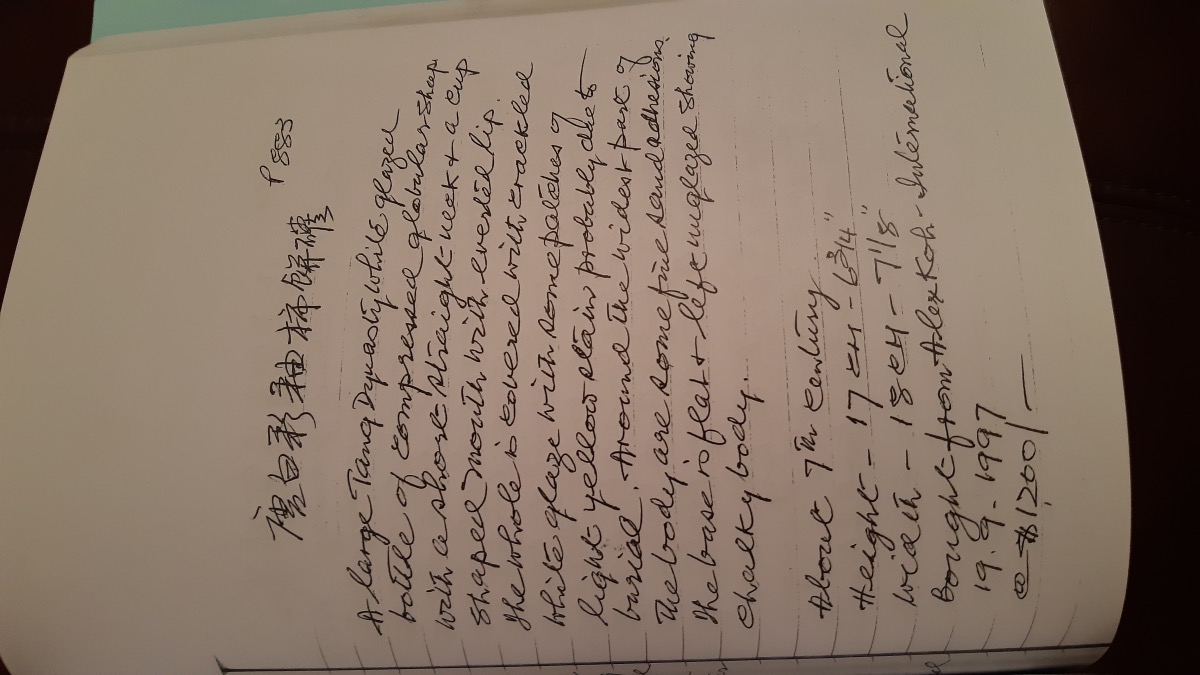 唐白彩釉柿餅罐 P883
A large Tang Dynasty white glazed
bottle of compressed globular shap
with a short straight neck & a cup
shaped mouth with everted lip.
The whole is covered with crackled
white glaze with some patches of
light yellow stain probably due to
burial. Around the widest part of
the body are some fine sand adhesions.
The base is flat & left unglazed showing
chalky body.
About 7th century
Height - 17 cm - 6 3/4"
Width - 18 cm - 7 1/8"
Bought from Alex Koh - International
19.9.1997
@ $1,200/-